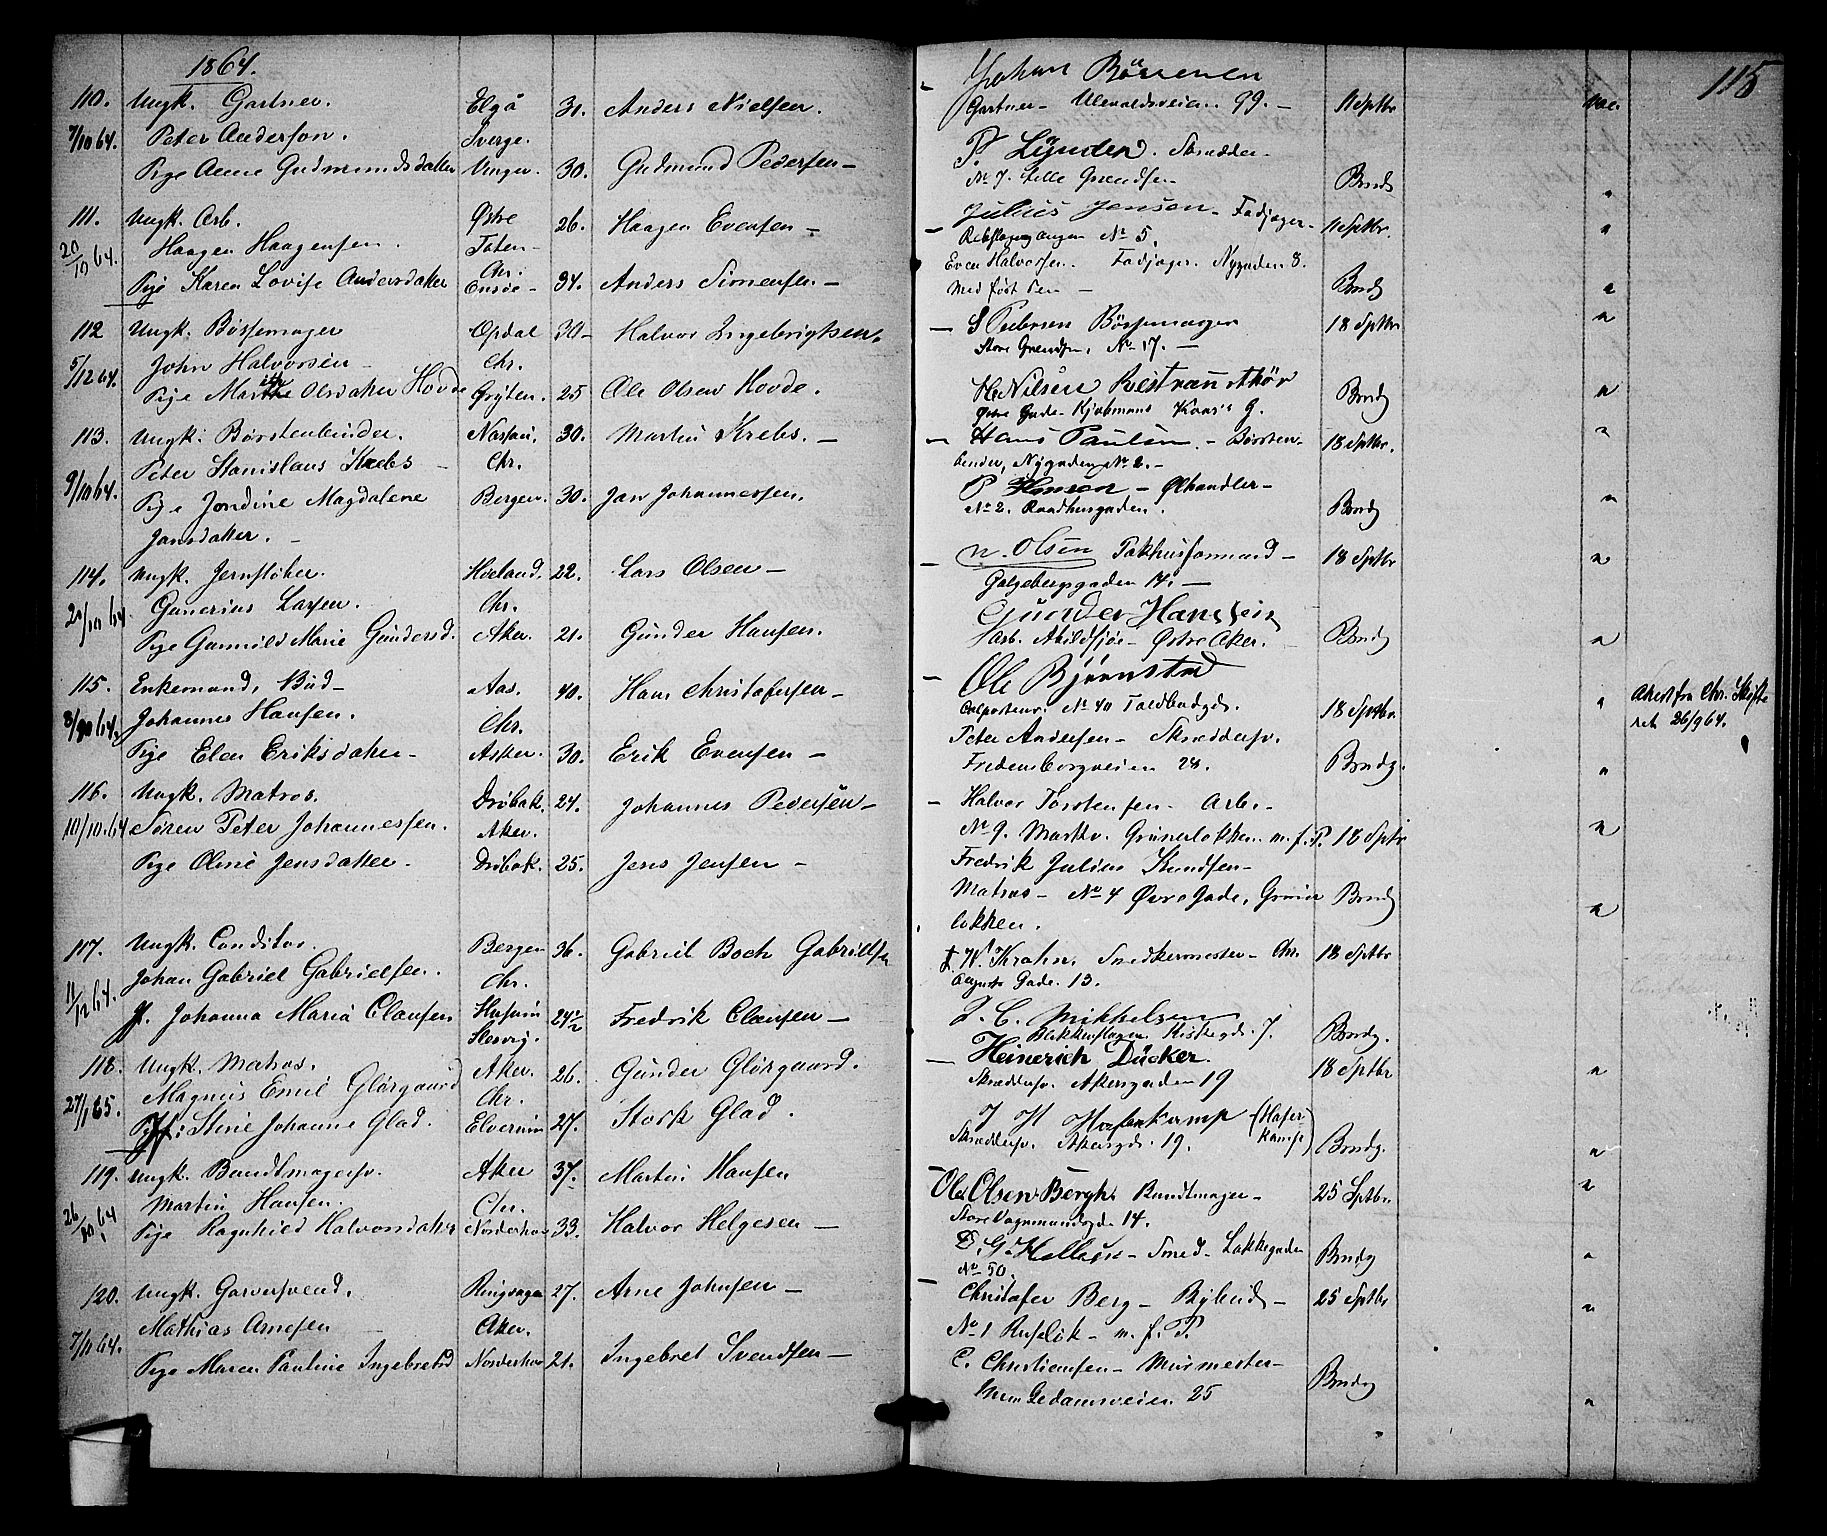 1864.
110. Ungk. Gartner. Elgå 30. Anders Nielsen.
7/10 64. Peter Anderson. Sverge.
Pige Anne Gudmundsdatter Ringer. 30. Gudmund Pedersen –
111. Ungk. Arb. Østre 26. Haagen Evensen –
20/10 64. Haagen Haagensen. Toten –
Chr.
Pige Karen Lovise Andersdatter 34. Anders Simensen –
112 Ungk. Børsemager Opdal 30 – Halvor Ingebrigtsen.
5/12 64. John Halvorsen – Chr.
Pige Marthe Olsdatter Hovde Gryten. 25 Ole Olsen Hovde.
113. Ungk. Børstenbinder. Nassau. 30. Martin Krebs. –
9/10 64. Peter Stanislaus Krebs – Chr.
Pige Jondine Magdalene Bergen. 30. Jan Johannessen.
Jansdatter. –
114. Ungk. Jernstøber. Hveland. 22. Lars Olsen –
20/10 64. Gunerius Larsen. Chr.
Pige Gunnild Marie Gundersd. Aker. 21. Gunder Hansen.
115. Enkemand, Bud – Aas. 40. Hans Christofersen –
Johannes Hansen. Chr.
Pige Elen Eriksdatter – Asker. 30. Erik Evensen –
116. Ungk. Matros. Drøbak. 24. Johannes Pedersen –
10/10.64 Søren Peter Johannessen. Aker.
Pige Oline Jensdatter. Drøbak. 25. Jens Jensen –
117. Ungk. Conditor. Bergen 36. Gabriel Boch Gabrielsen
11/12 64. Johan Gabriel Gabrielsen. Chr.
Jf. Johanna Maria Clausen Husum 24½ Fredrik Clausen –
Slesvig.
118. Ungk. Matros. Aker. 26. Gunder Glørgaard.
27/1 65. Magnus Emil Glørgaard Chr.
Jf: Stine Johanne Glad. Elverum 27. Stork Glad.
119. Ungk. Bundtmagersv. Aker 37. Martin Hansen
26/10 64 Martin Hansen. Chr.
Pige Ragnhild Halvorsdatter Norderhov 33. Halvor Helgesen –
120. Ungk. Garversvend. Ringsager 27. Arne Johnsen –
7/11 64. Mathias Arnesen Aker.
Pige Maren Pauline Ingebretsd Norderhov 21. Ingebret Svendsen –
115
Johan
Gartner – Ulevoldsveien 99. – 11 Sptbr Vac.
P. Lynden. Skrædder –
No 7. Lille Grændsen – Brudg "
Julius Jensen – Fadjager – 11 Sptbr. "
Rebslagergangen No 5.
Even Halvorsen. Fadjager. Nygaden 8.
Med ført Pen – Brudg "
– S Pedersen Børsemager 18 Sptbr "
Store Grændsen, No 17. –
H. Nilsen Brudg "
Øvre Gade – Kjøbmand
– Hans Paulsen – Børsten- 18 Sptbr. "
binder, Nygaden No 2. –
P Hansen – Ølhandler –
No 2. Raadhusgaden. Brudg "
– N. Olsen Pakhusformand – 18 Sptbr "
Galgebergsgaden 14. –
Gunder Hanssen
Arb. Abildsjøe – Østre Aker. – Brudg "
– Ole Bjørnstad
No 40 Toldbodgd. 18 Sptbr. " Attest fra Chr. Skifte
ret 26/9 64.
Peter Andersen – Skræddersv.
Fredensborgveien 28. Brudg. "
– Halvor Torstensen – Arb. –
No 9. Markv. Grünerløkken m.f.P. 18 Sptbr "
Fredrik Julius Knudsen –
Matros – No 4 Øvre Gade, Grüner Brudg "
løkken.
W. Krahn. Snedkermester – Chr. 18 Sptbr
Augusts Gade. 13.
J. C. Mikkelsen
Blikkenslager 7. Brudg.
– Heinerich Dücker. 18 Sptbr "
Skræddersv. Akersgaden 19
J H Hafenkamp (Hafer
Skræddersv. Akersgd. 19. kampf) Brudg. "
– Ole Olsen Bergh. Bundtmager – 25 Sptbr "
Store Vognmandsgd. 14.
Smed – Lakkegaden Brudg "
No 50.
– Christofer Berg – Bylund – 25 Sptbr "
No 1 Ruseløk – m. f. P.
C. Christiansen – Murmester – Brudg
25 "